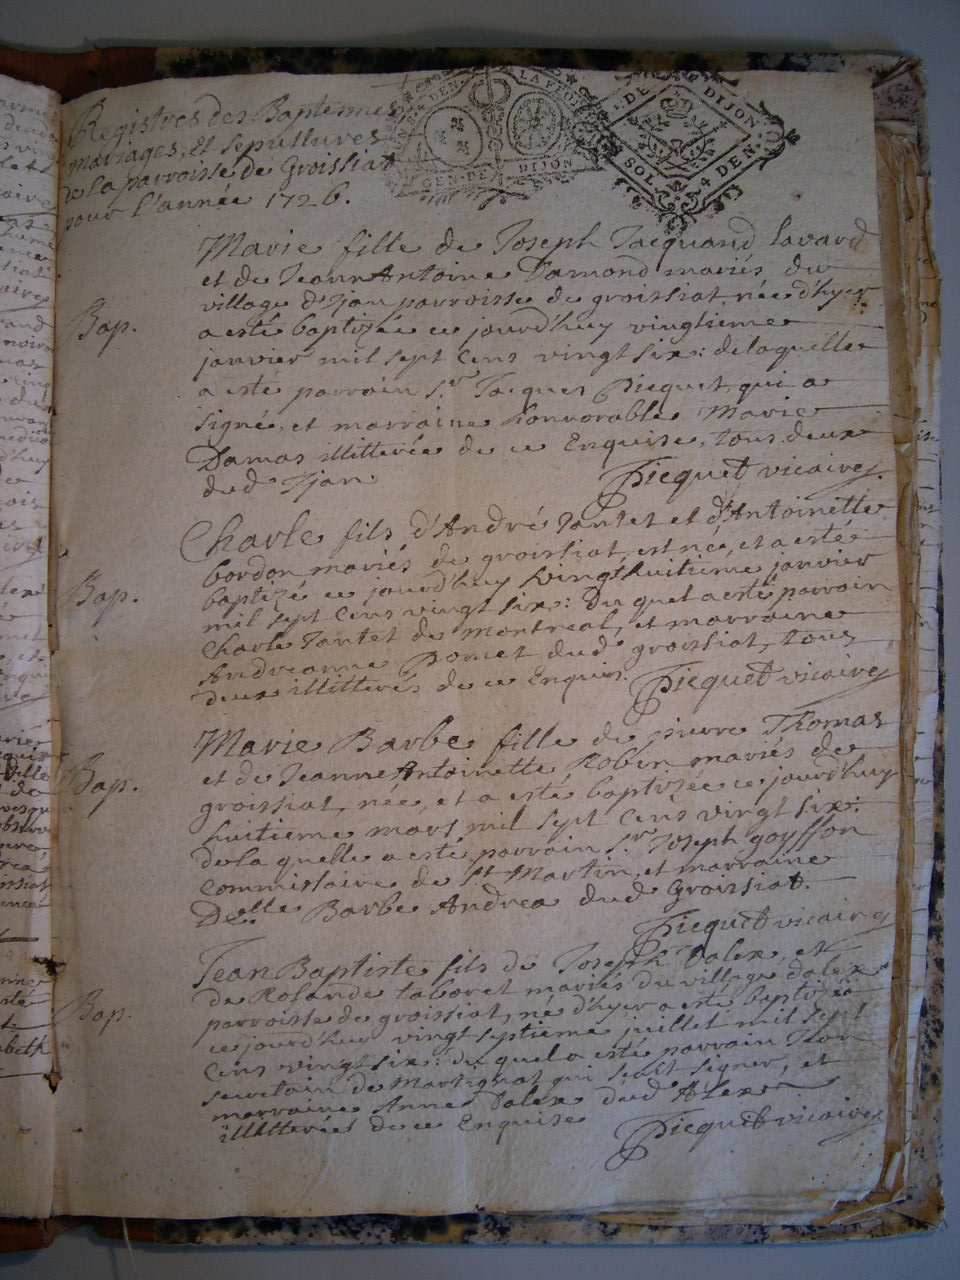 Registres des Baptemes
mariages, et sepultures
de la parroisse de Groissiat
pour l'année 1726.
GEN. DE DIJON
DE DIJON
SOL. 4 DEN.
Marie fille de Joseph Jacquand lavard
et de JeannAntoine Damond mariés du
village d'Ijan parroisse de groissiat, née d'hyer
Bap.
a esté baptizée ce jourd'huy vingtieme
janvier mil sept cens vingt six: de laquelle
a esté parrain sr. Jacques Picquet, qui a
signé, et marraine honnorable Marie
Damas illitterée de ce Enquise, tous deux
dud Ijan
Picquet vicaire
Charle fils d'André Tantet et d'Antoinette
bordon mariés de groissiat, est né, et a esté
Bap.
baptizé ce jourd'huy vingthuitieme janvier
mil sept cens vingt six: duquel a esté parrain
Charle Tantet de montreal, et marraine
Andreanne Poncet dud groissiat, tous
deux illitterés de ce Enquis.
Picquet vicaire
Marie Barbe fille de pierre Thomas
et de JeanneAntoinette Robin mariés de
Bap.
groissiat, née, et a esté baptizée ce jourd'huy
huitieme mars mil sept cens vingt six:
de la quelle a esté parrain sr. Joseph goyffon
Commissaire de St. Martin, et marraine
Delle Barbe Andrea dud Groissiat.
Picquet vicaire
Jean Baptiste fils de Joseph Dalex, et
de Rolande taboret mariés du village dalex
Bap.
parroisse de groissiat, né d'hyer a esté baptizé
ce jourd'huy vingt septieme juillet mil sept
cens vingt six: duquel a esté parrain
secretain de Martignat qui sçait signer, et
marraine Anne Dalex dud Alex
illitterée de ce Enquise
Picquet vicaire